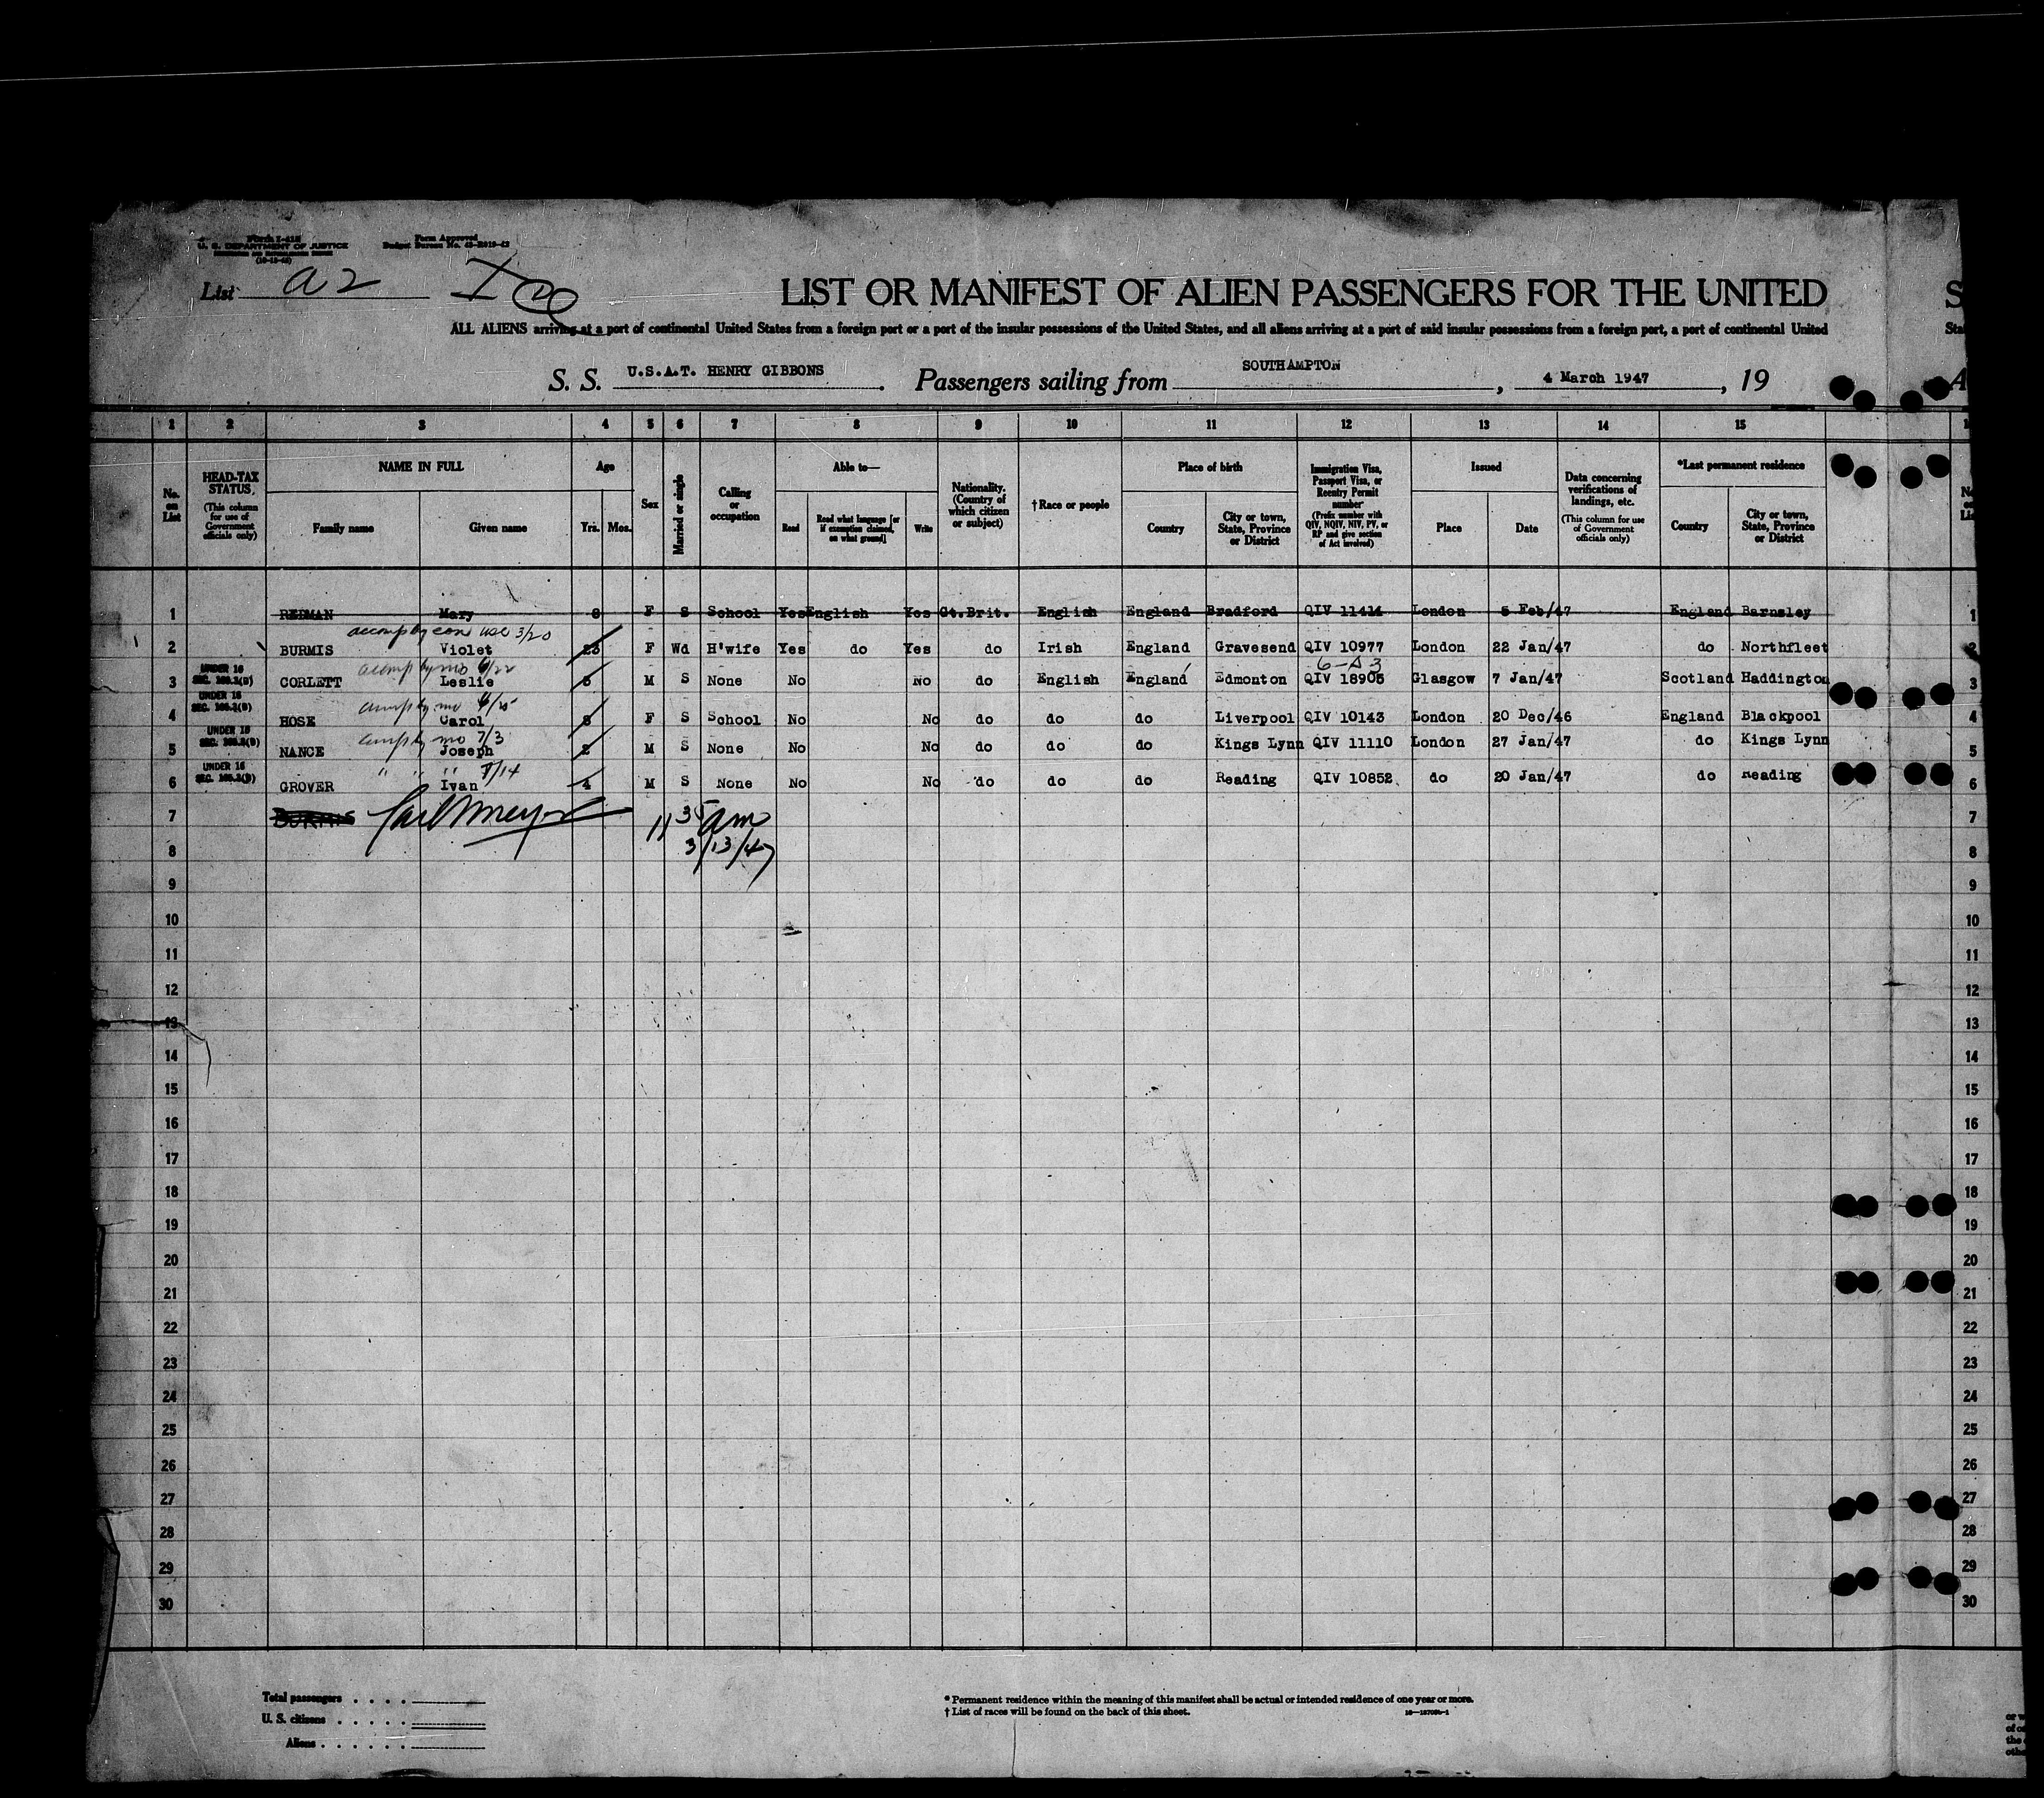 Form I-415
U. S. DEPARTMENT OF JUSTICE
IMMIGRATION AND NATURALIZATION SERVICE
Form Approved
Budget Bureau No. 43-R019-42
List a 2
LIST OR MANIFEST OF ALIEN PASSENGERS FOR THE UNITED
S
ALL ALIENS arriving at a port of continental United States from a foreign port or a port of the insular possessions of the United States, and all aliens arriving at a port of said insular possessions from a foreign port, a port of continental United
Sta
S. S. U.S.A.T. HENRY GIBBONS. Passengers sailing from SOUTHAMPTON, 4 March 1947, 19
1 2 3 4 5 6 7 8 9 10 11 12 13 14 15
No. on List
HEAD-TAX STATUS (This column for use of Government officials only)
NAME IN FULL
Family name
Given name
Age
Yrs. Mos.
Sex
Married or single
Calling or occupation
Able to—
Read
Read what language [or if exemption claimed, on what ground]
Write
Nationality. (Country of which citizen or subject)
† Race or people
Place of birth
Country
City or town, State, Province or District
Immigration Visa, Passport Visa, or Reentry Permit number (Prefix number with QIV, NQIV, NIV, PV, or RP and give section of Act involved)
Issued
Place
Date
Data concerning verifications of landings, etc. (This column for use of Government officials only)
*Last permanent residence
Country
City or town, State, Province or District
1 REDMAN Mary 8 F S School Yes English Yes Gt.Brit. English England Bradford QIV 11414 London 5 Feb/47 England Barnsley 1
3/20
2 BURMIS Violet 23 F Wd H'wife Yes do Yes do Irish England Gravesend QIV 10977 London 22 Jan/47 do Northfleet 2
accomp by mo 6/22
6-A3
UNDER 16
3 CORLETT Leslie 5 M S None No No do English England Edmonton QIV 18905 Glasgow 7 Jan/47 Scotland Haddington 3
UNDER 16
4 HOSE Carol 8 F S School No No do do do Liverpool QIV 10143 London 20 Dec/46 England Blackpool 4
accomp by mo 7/3
UNDER 16
5 NANCE Joseph 2 M S None No No do do do Kings Lynn QIV 11110 London 27 Jan/47 do Kings Lynn 5
" " " 7/14
UNDER 16
6 GROVER Ivan 4 M S None No No do do do Reading QIV 10852 do 20 Jan/47 do Reading 6
7 BURMIS 11 35 am 7
8 3/13/47 8
9 9
10 10
11 11
12 12
13 13
14 14
15 15
16 16
17 17
18 18
19 19
20 20
21 21
22 22
23 23
24 24
25 25
26 26
27 27
28 28
29 29
30 30
Total passengers . . . .
U. S. citizens . . . . .
Aliens . . . . . .
* Permanent residence within the meaning of this manifest shall be actual or intended residence of one year or more.
† List of races will be found on the back of this sheet.